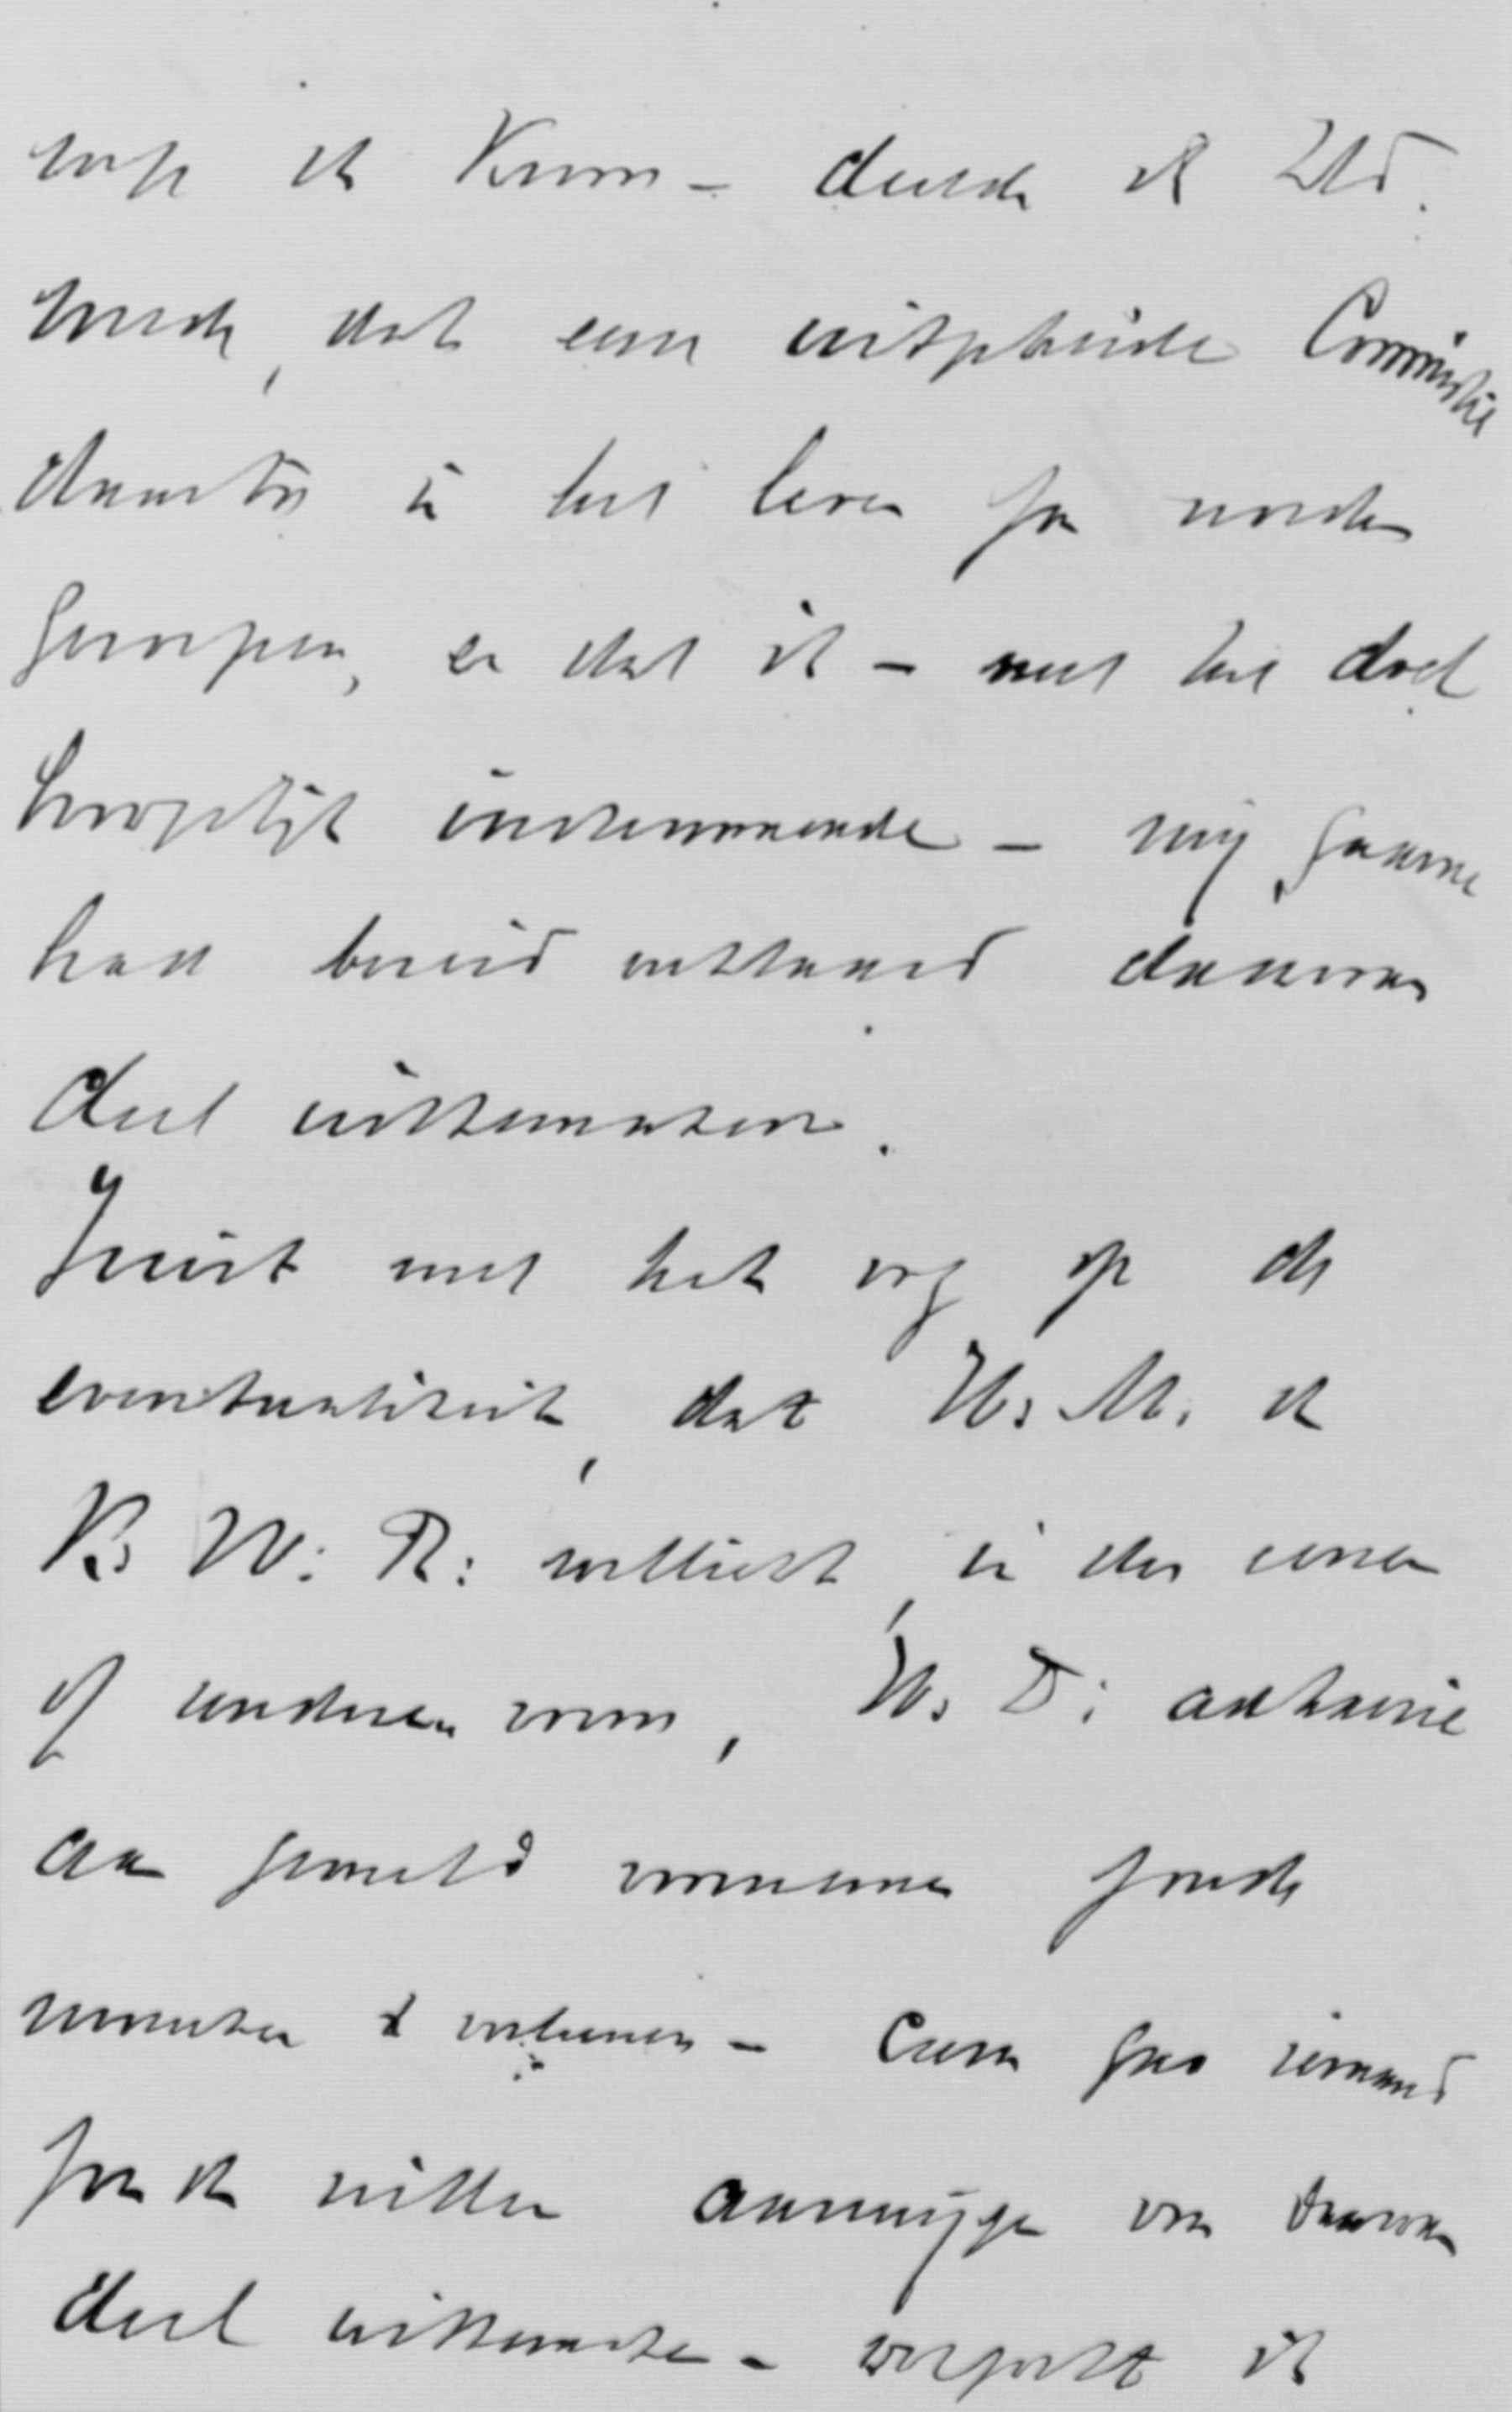 ik – deelde ik Ued.
mede, dat eene uitgebreide Commissie
daartoe in het leven zou worden
geroepen, en dat ik – met het doel
hoogelijk instemmende – mij gaarne
had bereid verklaard daarvan
deel uittemaken.
Juist met het oog op de
eventualiteit, dat H. M. de
K. W. R. wellicht, in den eenen
of anderen vorm, H. D. adhaesie
aan gemeld voornemen zoude
wenschen te verleenen – Eene iemand
zoude willen aanwijzen om daarvan
deel uittemaken – verzocht ik